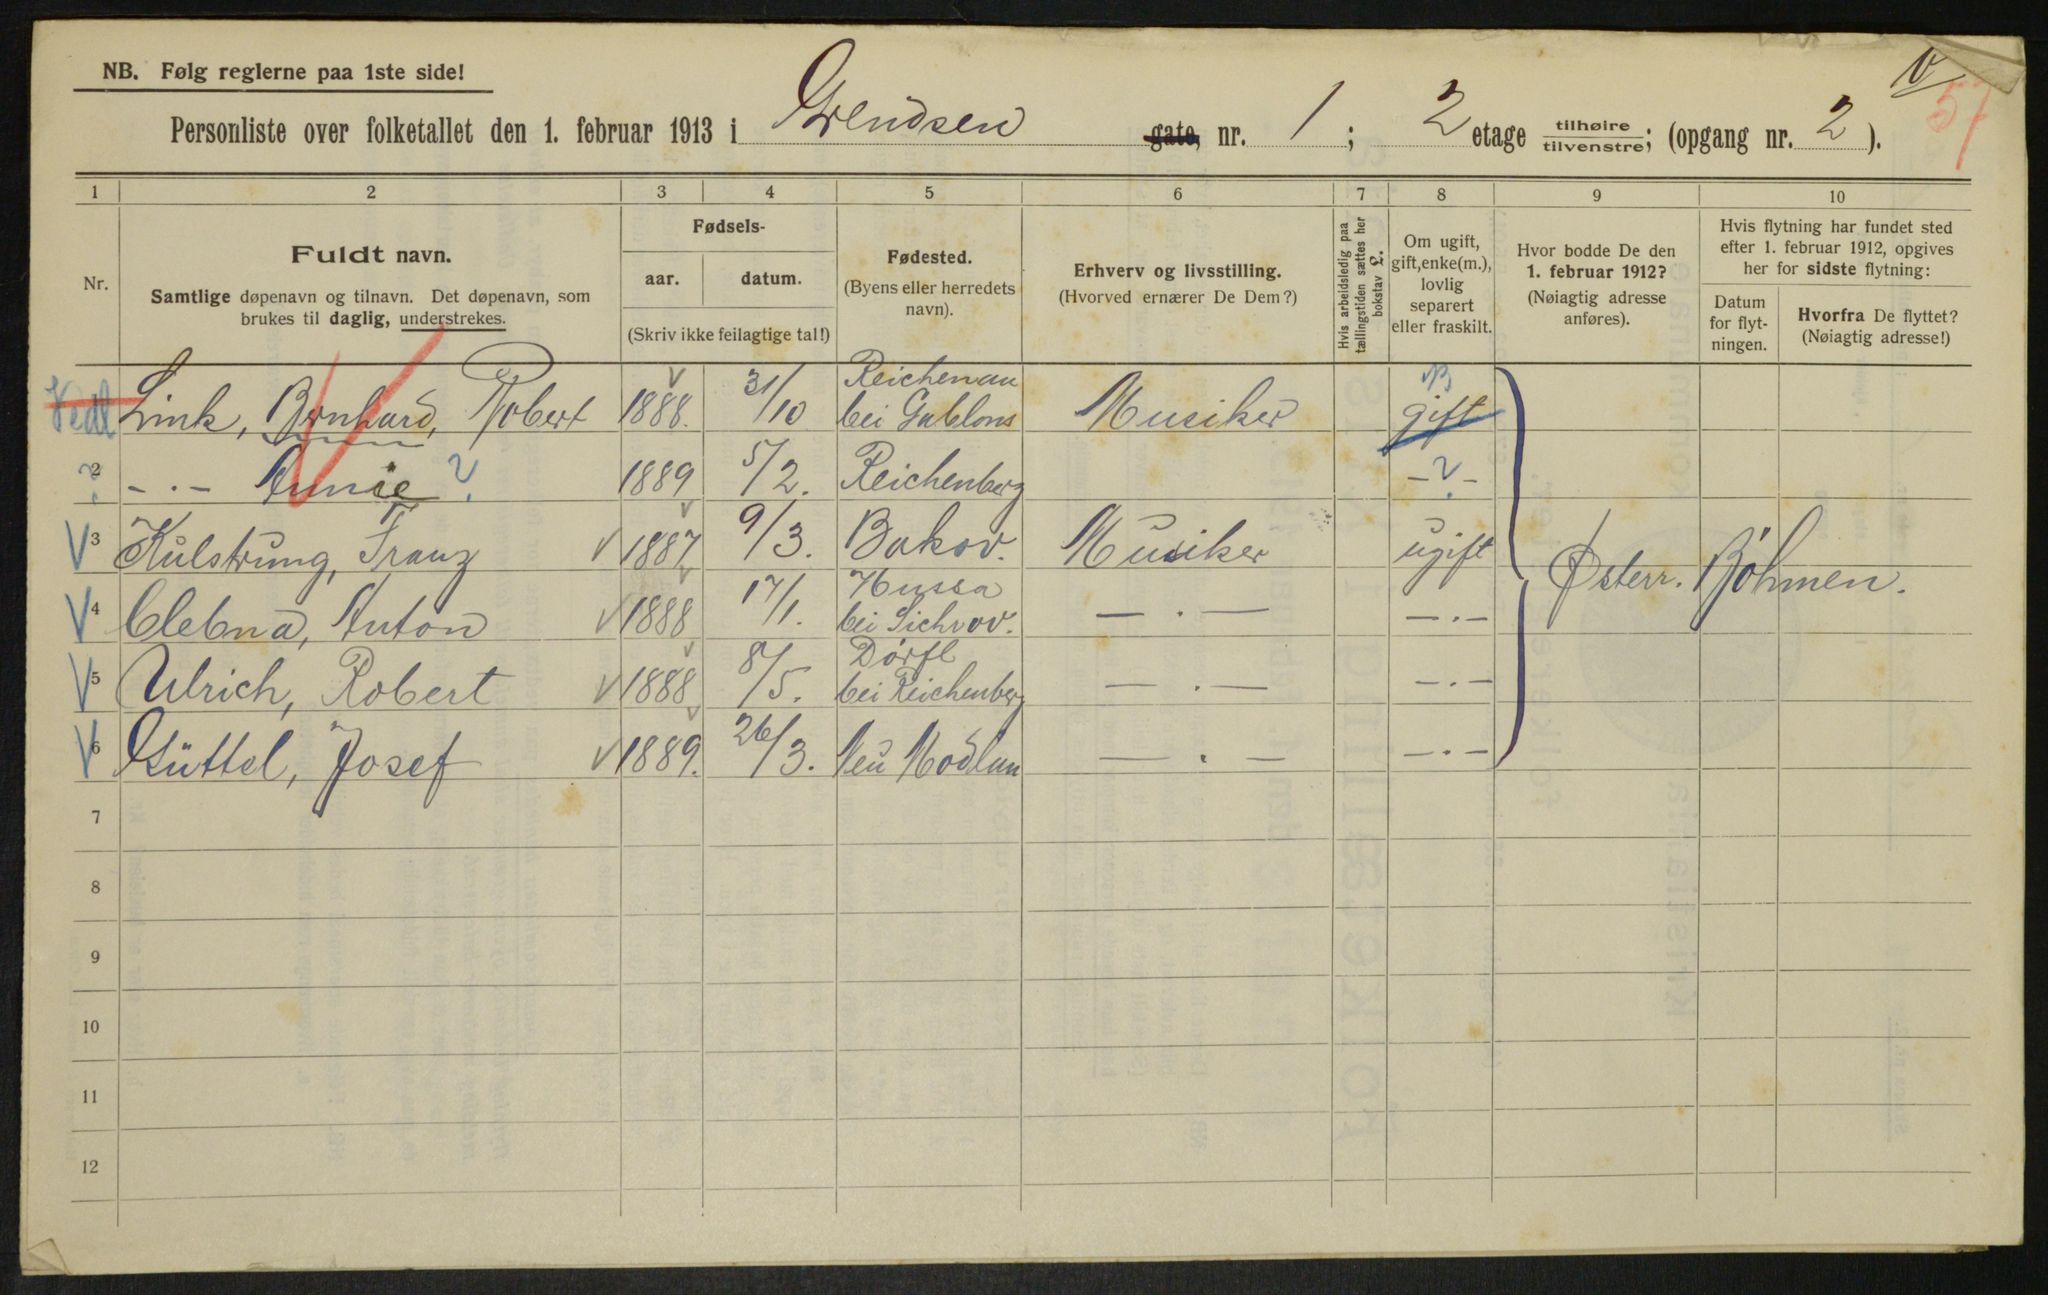 NB. Følg reglerne paa 1ste side!
Personliste over folketallet den 1. februar 1913 i Grendsen gate, nr. 1; 2 etage tilhøire tilvenstre; (opgang nr. 2).
57
1 2 3 4 5 6 7 8 9 10
Nr.
Fuldt navn.
Samtlige døpenavn og tilnavn. Det døpenavn, som
brukes til daglig, understrekes.
Fødsels-
aar. datum.
(Skriv ikke feilagtige tal!)
Fødested.
(Byens eller herredets
navn).
Erhverv og livsstilling.
(Hvorved ernærer De Dem?)
Hvis arbeidsledig paa
tællingstiden sættes her
bokstav L.
Om ugift,
gift, enke(m.),
lovlig
separert
eller fraskilt.
Hvor bodde De den
1. februar 1912?
(Nøiagtig adresse
anføres).
Hvis flytning har fundet sted
efter 1. februar 1912, opgives
her for sidste flytning:
Datum
for flyt-
ningen.
Hvorfra De flyttet?
(Nøiagtig adresse!)
Link, Bernhard, Robert 1888. 31/10 Reichenau
bei Gablons Musiker gift
2 -·- Annie ? 1889 5/2. Reichenberg -?-
V 3 Kulstrung, Franz V 1887 9/3. Bakov. Musiker ugift
Østerr. Böhmen.
V 4 Clebna, Anton V 1888 17/1. Hussa
bei Sichrov. — · — -·-
V 5 Ulrich, Robert V 1888 8/5. Dörfl
bei Reichenberg — · — -·-
V 6 Güttel, Josef V 1889. 26/3. Neu Modlan — · — -·-
7
8
9
10
11
12